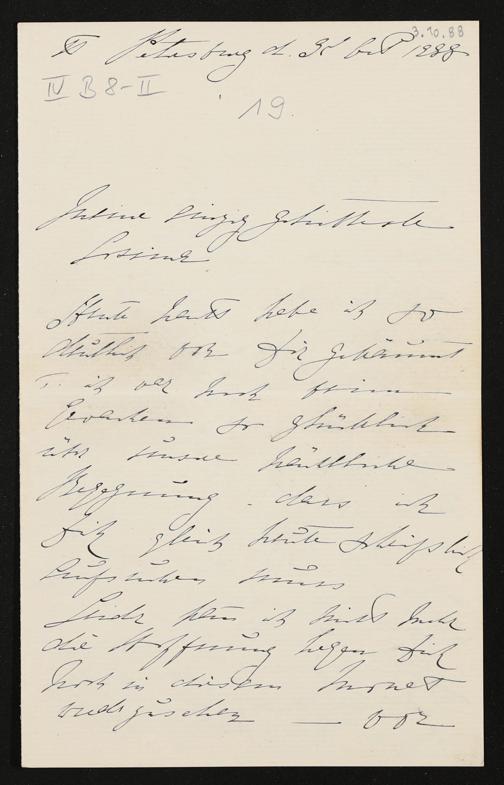 3.10.88
St Petersburg d. 3t Oct 1888
IV B 8-II
19.
Meine einzig geliebteste
Cosima
Heute Nacht habe ich so
deutlich von Dir geträumt
u. ich war noch beim
Erwachen so glücklich
über unsere
Begegnung - dass ich
Dich gleich heute schriftlich
aufsuchen muss
Leider kann ich nicht mehr
die Hoffnung hegen Dich
noch in diesem Monat
wiederzusehen — vor